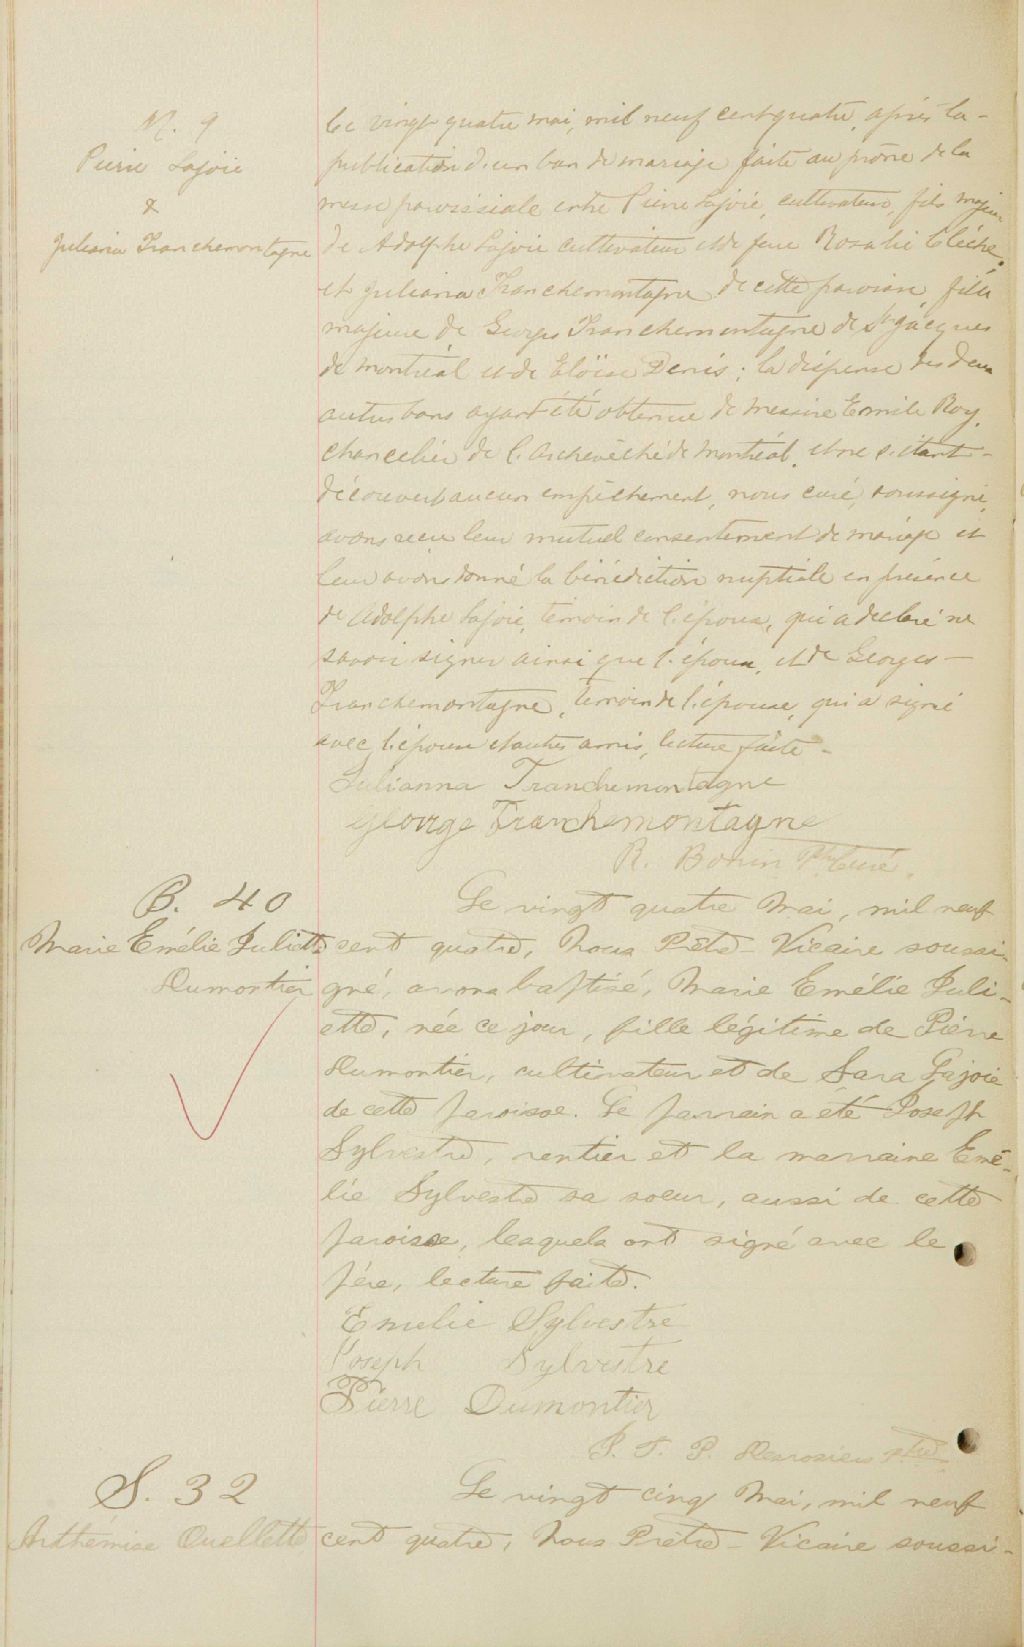 M. 9
Pierre Lajoie
&
Juliana Tranchemontagne
Le vingt quatre mai, mil neuf cent quatre, après la
publication d'un ban de mariage faite au prône de la
messe paroissiale entre Pierre Lajoie, cultivateur, fils majeur
de Adolphe Lajoie cultivateur et de feue Rosalie
et Juliana Tranchemontagne de cette paroisse fille
majeure de Georges Tranchemontagne de St Jacques
de Montréal et de Eloïse Denis ; la dispense des deux
autres bans ayant été obtenue de messire Emile Roy,
chancelier de l'Archevêché de Montréal, et ne s'étant
découvert aucun empêchement, nous curé, soussigné,
avons reçu leur mutuel consentement de mariage et
leur avons donné la bénédiction nuptiale en présence
de Adolphe Lajoie, témoin de l'époux, qui a déclaré ne
savoir signer ainsi que l'époux, et de Georges
Tranchemontagne, témoin de l'épouse, qui a signé
avec l'épouse et autres amis, lecture faite -
Julianna Tranchemontagne
George Tranchemontagne
R. Bonin Ptre Curé.
B. 40
Marie Emélie Juliette
Dumontier
Le vingt quatre Mai, mil neuf
cent quatre, Nous Prêtre - Vicaire soussi-
gné, avons baptisé, Marie Emélie Juli-
ette, née ce jour, fille légitime de Pierre
Dumontier, cultivateur et de Sara Lajoie
de cette paroisse. Le parrain a été Joseph
Sylvestre, rentier et la marraine Emé-
lie Sylvestre sa soeur, aussi de cette
paroisse, lesquels ont signé avec le
père, lecture faite.
Emelie Sylvestre
Joseph Sylvestre
Pierre Dumontier
J. T. P. Desrosiers Ptre
S. 32
Arthémise Ouellette
Le vingt cinq Mai, mil neuf
cent quatre, Nous Prêtre - Vicaire soussi-